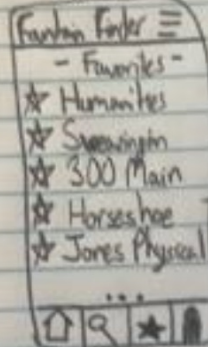 Fountain Finder
- Favorites -
Humanities
Swearingen
300 Main
Horseshoe
Jones Physical
...